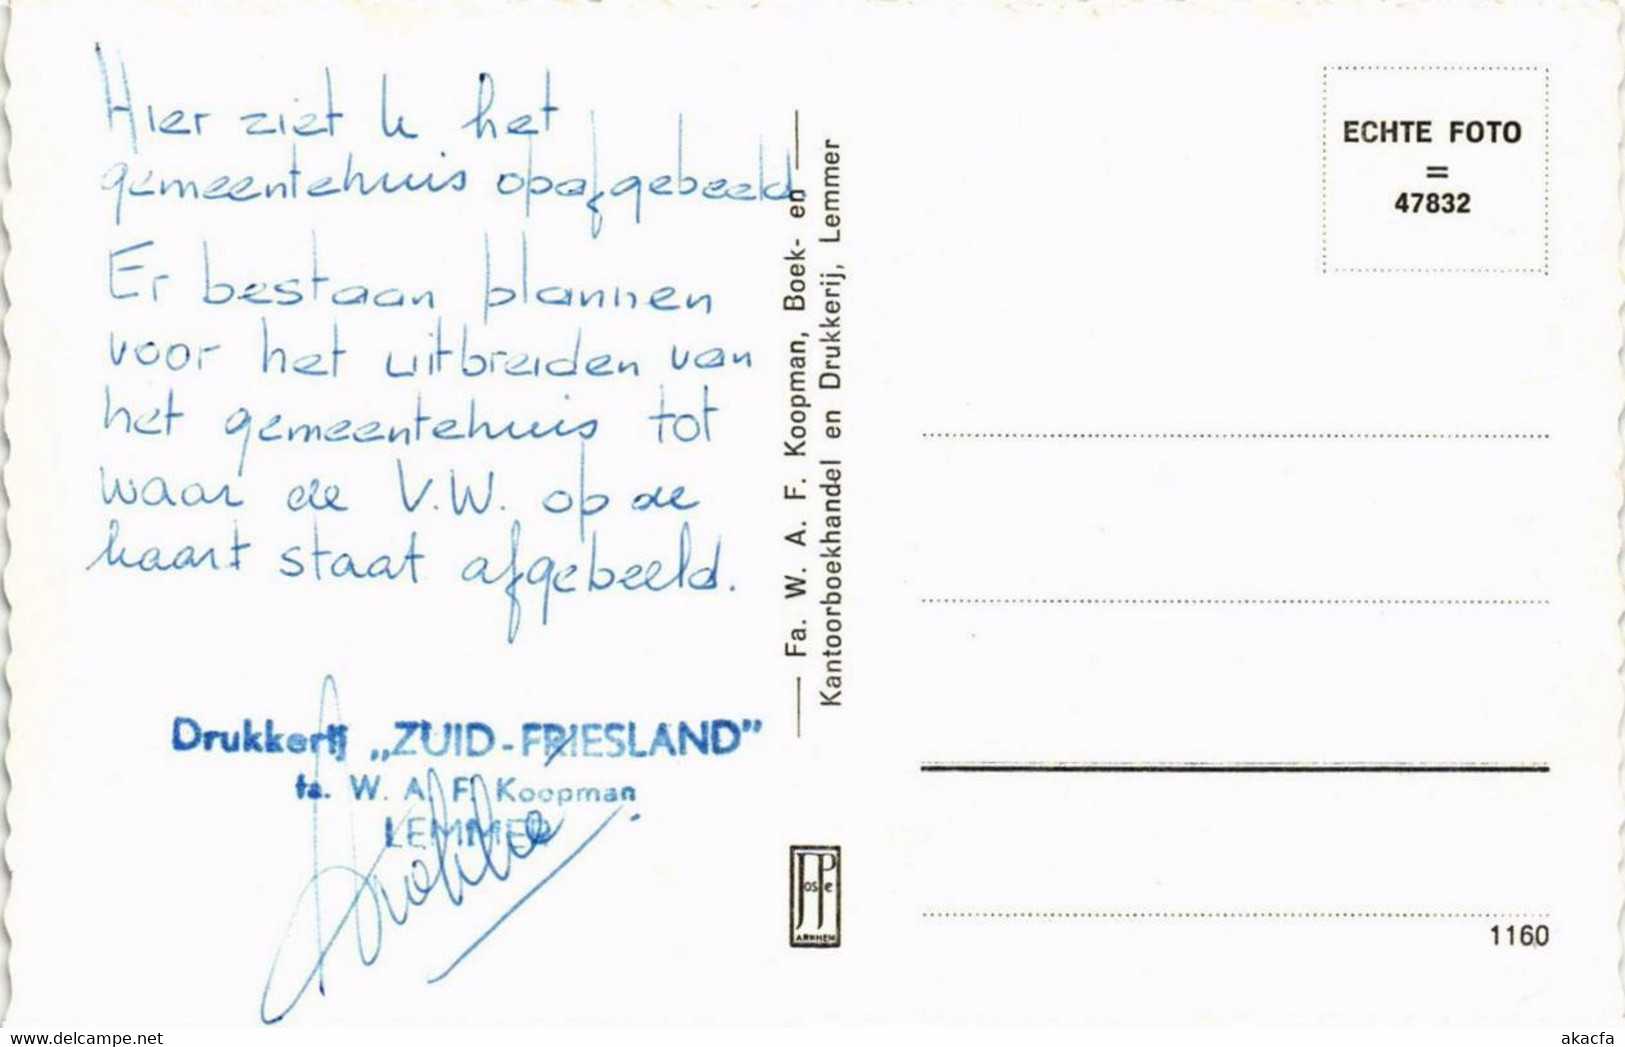 Hier ziet u het
gemeentehuis op afgebeeld
Er bestaan plannen
voor het uitbreiden van
het gemeentehuis tot
waar de V.W. op de
kaart staat afgebeeld.
Drukkerij „ZUID-FRIESLAND”
fa. W. A. F. Koopman
LEMMER
Fa. W. A. F. Koopman, Boek- en
Kantoorboekhandel en Drukkerij, Lemmer
JosPe
ARNHEM
ECHTE FOTO
=
47832
1160
akacfa